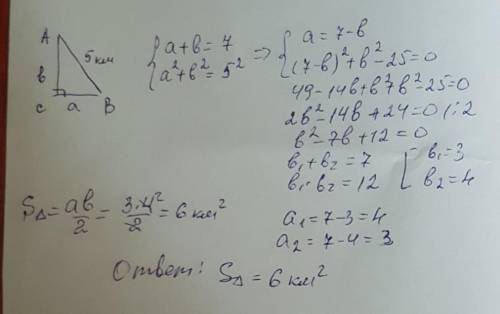 A
5 км
в
C a B
{ a+в = 7
a²+в² = 5²
=> { a = 7-в
(7-в)²+в²-25=0
49-14в+в²+в²-25=0
2в²-14в+24=0 /:2
в²-7в+12=0
в₁+в₂=7
в₁·в₂=12
[ в₁=3
в₂=4
S△=aв/2=3·4²/2=6 км²
a₁=7-3=4
a₂=7-4=3
Ответ: S△=6 км²